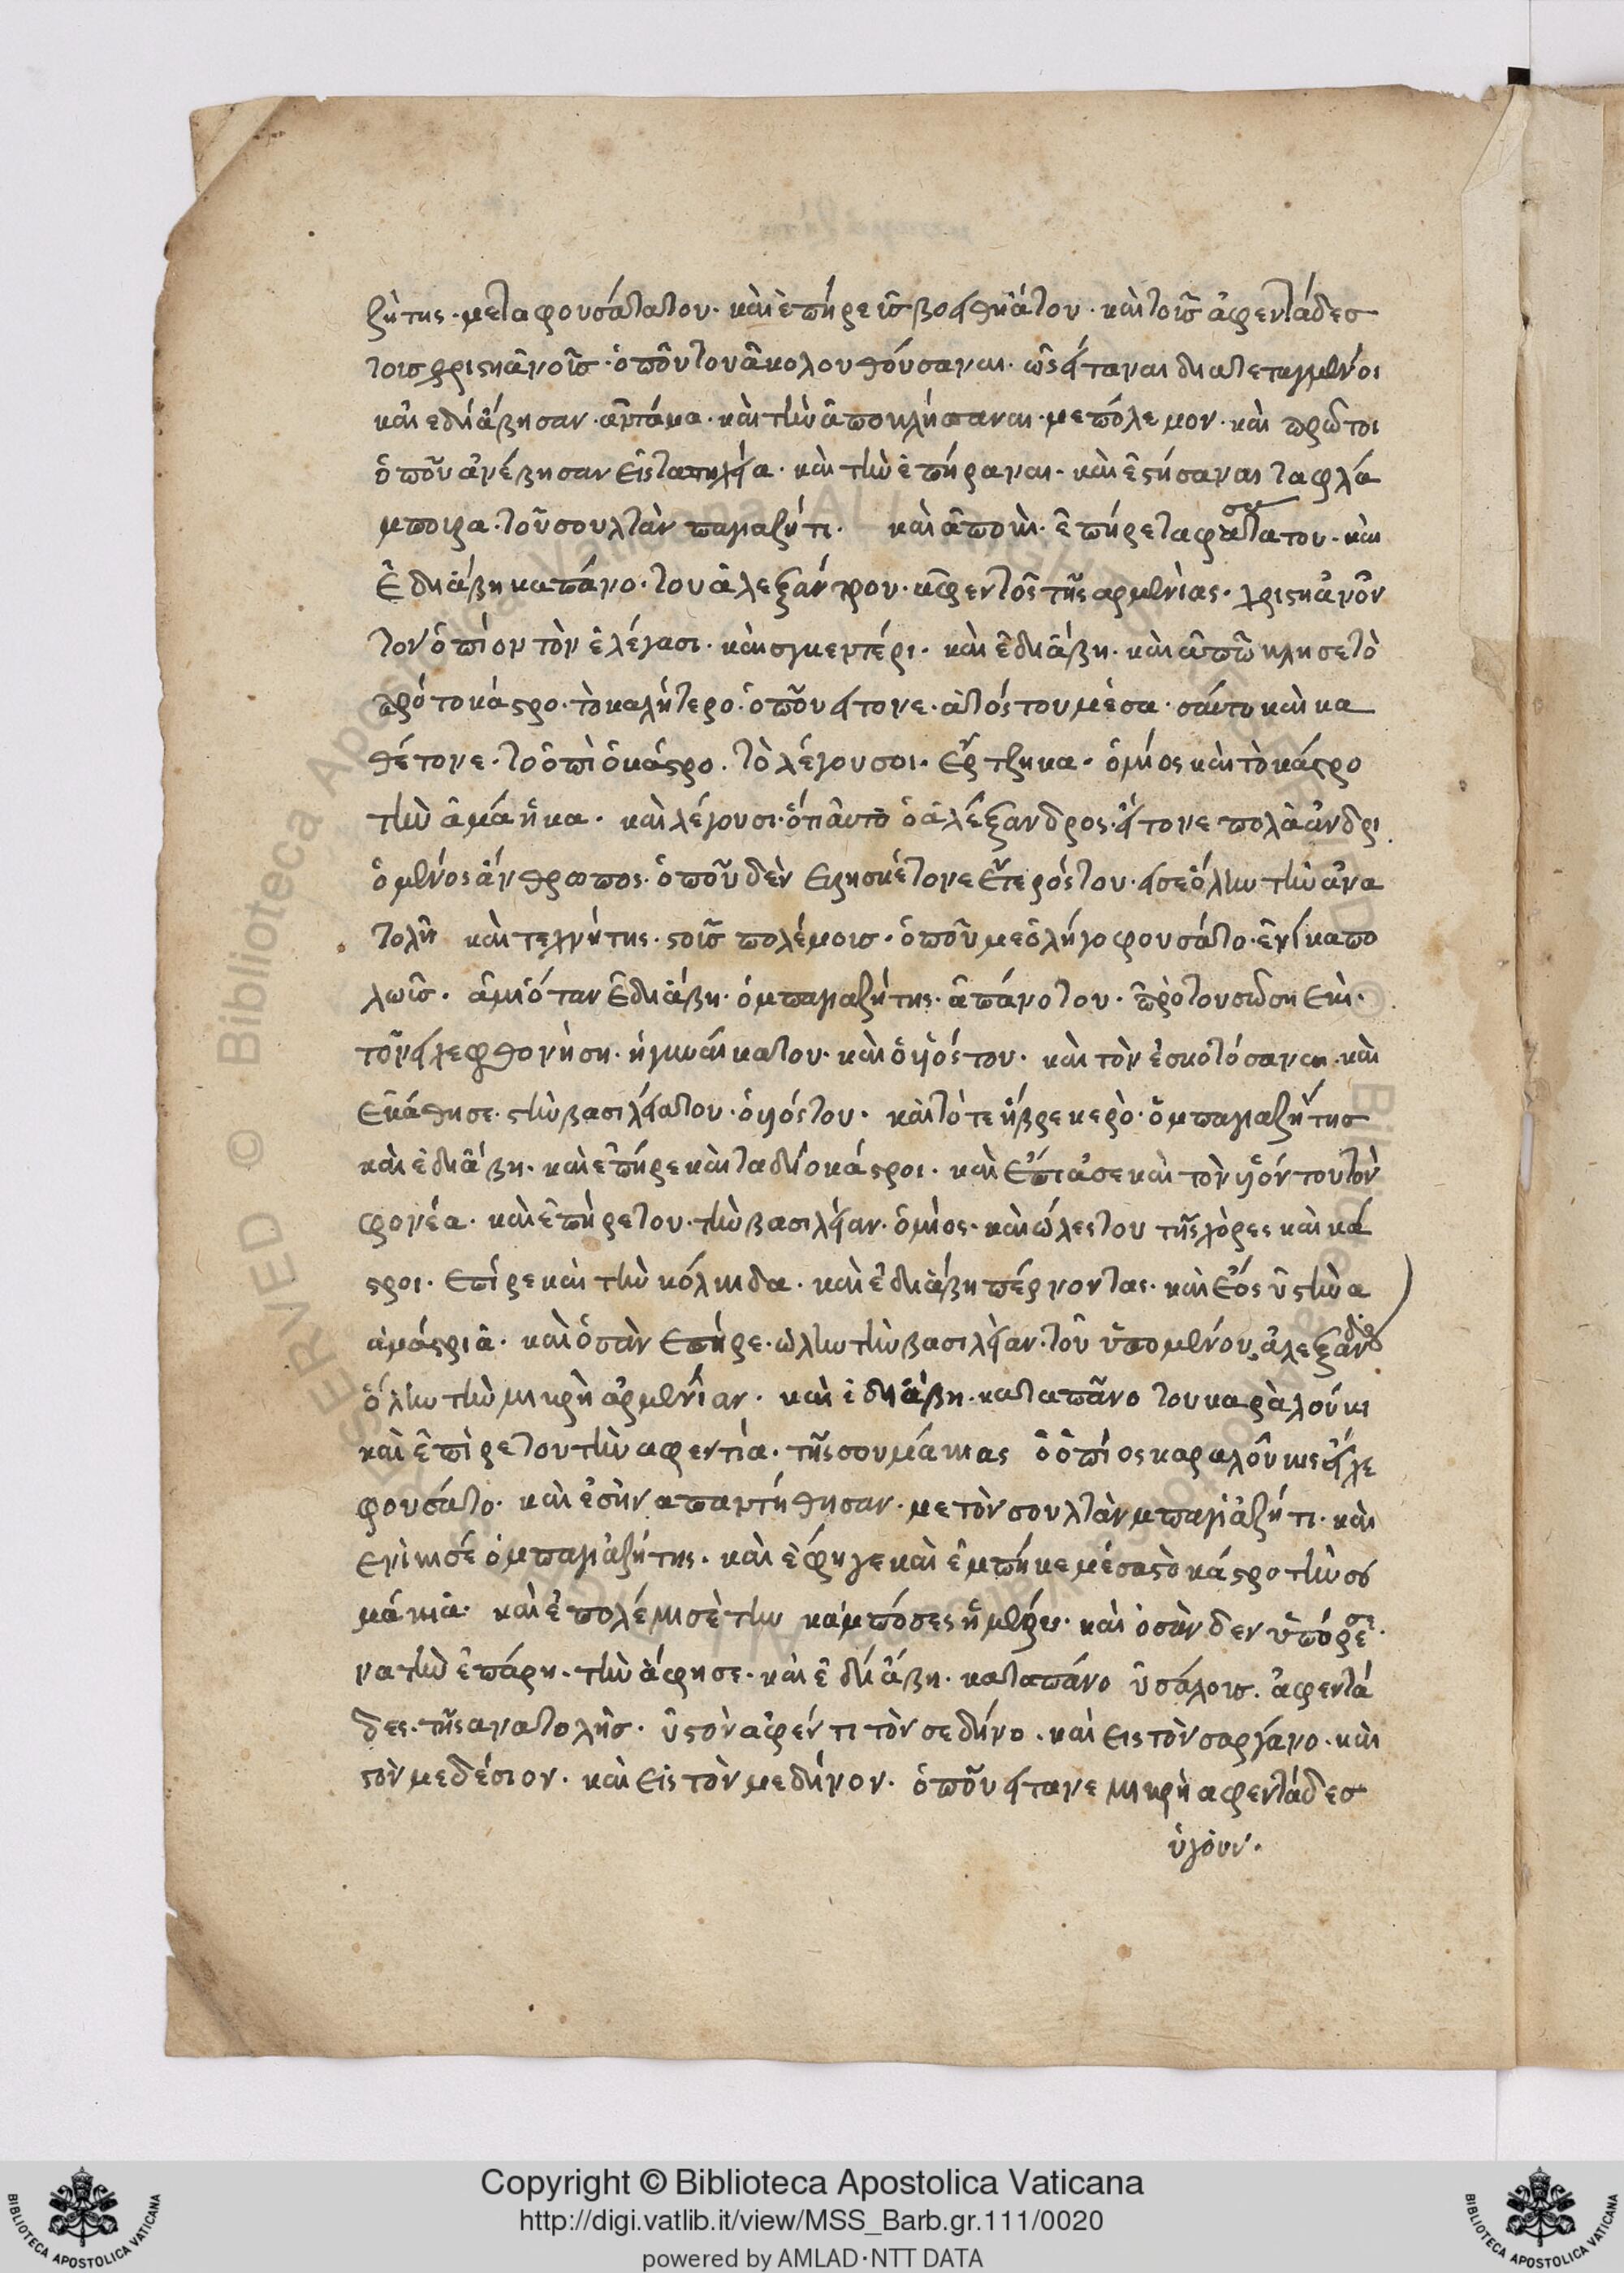 ζήτης· μετα φουσάτατου· καὶ ἐπήρε εἰς βοήθηάτου· καὶ τοῖς ἀφεντάδες
τοις χριστηἀνοῖς· ὁποῦ τον ἀκολουθούσαναι· ὡς ἤταναι διατεταγμένοι
καὶ εδηἄβησαν ἀντάμα· καὶ τὴν ἀποκλήσαναι· με πόλεμον· καὶ πρῶτοι
ὁποῦ ἀνέβησαν εἰς τα τηχῄα· καὶ τὴν ἐπήραναι· καὶ ἐστήσαναι τα φλά
μπουρα· τοῦ σουλτὰν παγιαζήτι· καὶ ἀποκὶ· ἐπήρε τα φουσάτα του· καὶ
ἐδηάβη καπάνο· του ἀλεξάνδρου· ἀφεντὸς τῆς αρμενίας· χριστηἀνὸν
τον ὁπίον τὸν ἐλέγασι· καὶ σγκεντέρι· καὶ ἐδηάβη· καὶ ἀπῶκλησε τὸ
πρότο κάστρο· τὸ καλήτερο· ὁποῦ ἤτονε· ἀτός του μέσα· σάντι και κα
θέτονε· το ὁπὶο κάστρο· τὸ λέγουσοι· Ερτζηκα· ὁμήος καὶ τὸ κάστρο
τὴν ἀμάηκα· καὶ λέγουσι· ὅτι ἀυτο ὁ ἀλέξανδρος· ἤτονε πολὰ ἀνδρι
ὁμένος ἄνθρωπος· ὁποῦ δὲν ευρησκέτονε ἕτερός του· ἠσε ὅλην τὴν ἀνα
τολὴ καὶ τεχνήτης· στοῖς πολέμοις· ὁποῦ με ὀλήγο φουσάτο· ἐνίκα πο
λοῖς· ἀμι ὅταν ἐδηάβη· ὁ μπαγιαζήτης· ἀπάνο του· πρὸ του σώση εκὶ·
τὸν ἤχε φθονήση· ἡ γυναίκα του· καὶ ὁ υἱός του· καὶ τὸν ἐσκοτόσαναι· καὶ
εκάθησε· στὴν βασιλήατου· ὁ υἱός του· καὶ τότε ἥβρε κερὸ· ὁ μπαγιαζήτης
καὶ ἐδηάβη· καὶ επήρε καὶ τα δύο κάστροι· καὶ ἐπιάσε καὶ τὸν υἱόν του τὸν
φονέα· καὶ ἐπήρε του· τὴν βασιλήαν· ὁμήος· καὶ ώλες του τῆς χόρες και κά
στροι· επίρε και τὴν κόλχιδα· καὶ ἐδηάβη πέρνοντας· καὶ ἑός ὑς τὴν α
ἀμάστριὰ· καὶ ὁσὰν επήρε· ὠλην τὴν βασιλήαν· τοῦ ὑπομένου ἀλεξάνδρου
ὅλην τὴν μικρὴ ἀρμενίαν· καὶ ἐδηάβη· κατα πᾶνο του καραλούκι
καὶ ἐπίρε του τὴν αφεντία· τῆς σουμάκιας ὁ ὁπίος καραλοῦκις ἤχε
φουσάτο· καὶ ἐσὴναπαντήθησαν· με τὸν σουλτὰν μπαγιαζήτι· καὶ
ενίκισέ ὁ μπαγιαζήτης· καὶ ἐφηγε καὶ ἐμπήκε μέσα στὸ κάστρο τὴν σου
μάκιὰ· καὶ ἐπολέμισὲ την καμπόσες ἡμέρες· καὶ ὁσὰν δεν ὑπόρεσε·
να τὴν ἐπάρη· τὴν ἀφησε· καὶ ἐδηάβη· κατα πάνο ὑσάλοις· ἀφεντά
δες· τῆς ανατολῆς· ὑστὸν ἀφέντι τὸν σεδήνο· καὶ εις τὸν σαρχάνο· καὶ
στὸν μεδέσιον· καὶ εἰς τὸν μεδήνον· ὁποῦ ἤτανε μικρὴ αφεντάδες
ὑγόυν·
Copyright © Biblioteca Apostolica Vaticana
http://digi.vatlib.it/view/MSS_Barb.gr.111/0020
powered by AMLAD·NTT DATA
BIBLIOTECA APOSTOLICA VATICANA
BIBLIOTECA APOSTOLICA VATICANA